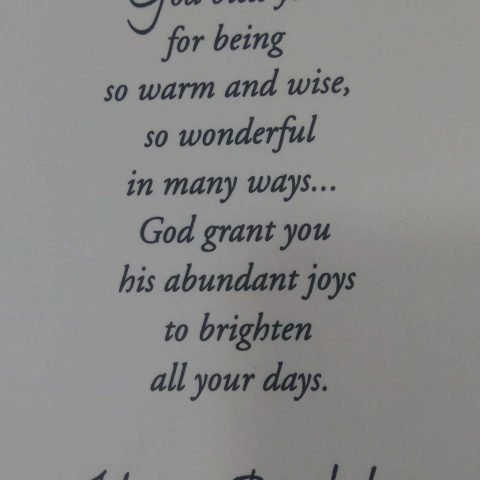 for being
so warm and wise,
so wonderful
in many ways...
God grant you
his abundant joys
to brighten
all your days.